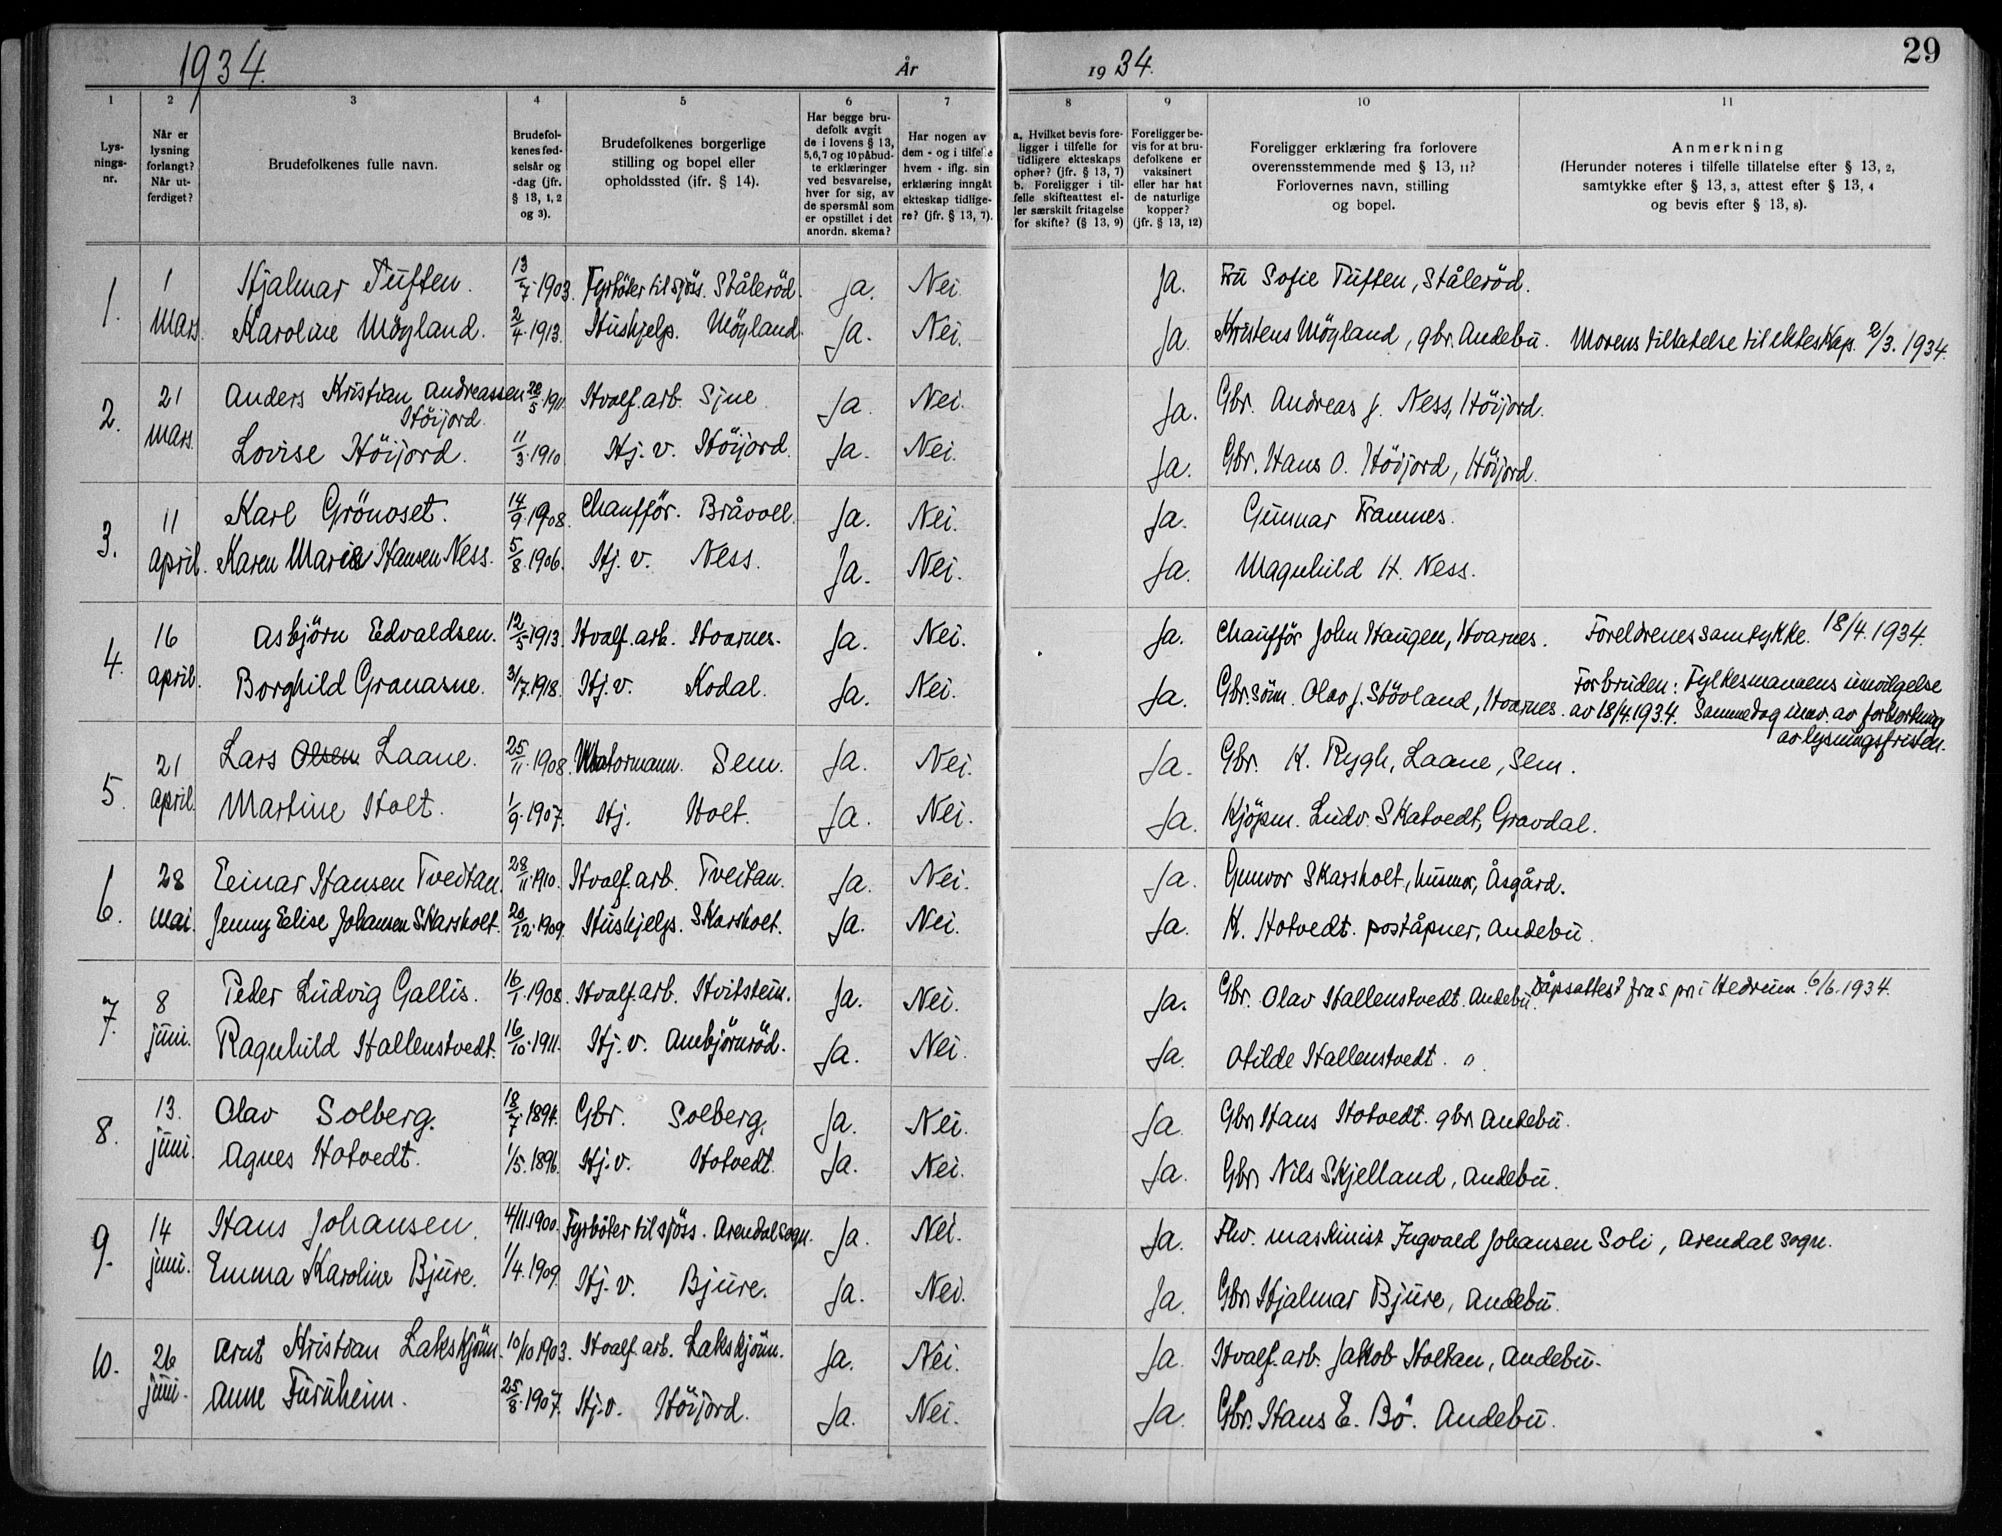 1934.
År
19 34.
29
1
2
3
4
5
6
7
8
9
10
11
Lys-
nings-
nr.
Når er
lysning
forlangt?
Når ut-
ferdiget?
Brudefolkenes fulle navn.
Brudefol-
kenes fød-
selsår og
-dag (jfr.
§ 13, 1, 2
og 3).
Brudefolkenes borgerlige
stilling og bopel eller
opholdssted (ifr. § 14).
Har begge bru-
defolk avgit
de i lovens § 13,
5,6,7 og 10 påbud-
te erklæringer
ved besvarelse,
hver for sig, av
de spørsmål som
er opstillet i det
anordn. skema?
Har nogen av
dem - og i tilfelle
hvem - iflg. sin
erklæring inngåt
ekteskap tidlige-
re? (jfr. § 13, 7).
a. Hvilket bevis fore-
ligger i tilfelle for
tidligere ekteskaps
ophør? (jfr. § 13, 7)
b. Foreligger i til-
felle skifteattest el-
ler særskilt fritagelse
for skifte? (§ 13, 9)
Foreligger be-
vis for at bru-
defolkene er
vaksinert
eller har hat
de naturlige
kopper?
(jfr. § 13, 12)
Foreligger erklæring fra forlovere
overensstemmende med § 13, 11?
Forlovernes navn, stilling
og bopel.
Anmerkning
(Herunder noteres i tilfelle tillatelse efter § 13, 2,
samtykke efter § 13, 3, attest efter § 13, 4
og bevis efter § 13, 8).
1. 1 Mars. Hjalmar Tuften. 13/7.1903. Fyrböter til sjöss. Ståleröd. Ja. Nei. Ja. Fru Sofie Tuften, Ståleröd.
Karoline Möyland. 2/4.1913. Hushjelp. Möyland. Ja. Nei. Ja. Kristens Möyland, gbr. Andebu. Morens tillatelse til ekteskap. 2/3. 1934.
2. 21 mars. Anders Kristian Andreassen 28/5.1911. Hvalf.arb. Sjue Ja. Nei. Ja. Gbr. Andreas J. Ness, Höijord.
Höijord.
Lovise Höijord. 11/3.1910 Hj. v. Höijord. Ja. Nei. Ja. Gbr. Hans O. Höijord, Höijord.
3. 11 april. Karl Grönoset. 14/9.1908. Chaufför. Bråvoll. Ja. Nei. Ja. Gunnar Framnes.
Karen Marie Hansen Ness. 5/8.1906. Hj. v. Ness. Ja. Nei. Ja. Magnhild H. Ness.
4. 16 april. Asbjörn Edvaldsen. 12/5.1913. Hvalf.arb. Hvarnes. Ja. Nei. Ja. Chaufför John Haugen, Hvarnes. Foreldrenes samtykke. 18/4. 1934.
Borghild Granasne. 3/7.1918. Hj. v. Kodal. Ja. Nei. Ja. Gbr.sönn. Olav J. Stövland, Hvarnes. For bruden: Fylkesmannens innvilgelse
av 18/4.1934. Samme dag innv. av forkortning
av lysningsfristen.
5. 21 april. Lars Olsen Laane. 25/11.1908. Matormann. Sem. Ja. Nei. Ja. Gbr. K. Rygh, Laane, Sem.
Martine Holt. 1/9.1907. Hj. Holt. Ja. Nei. Ja. Kjöpm. Ludv. Skatvedt, Gravdal.
6. 28 mai. Einar Hansen Tveitan. 28/11.1910. Hvalf.arb. Tveitan. Ja. Nei. Ja. Gunvor Skarsholt, husmor, Åsgård.
Jenny Elise Johansen Skarsholt. 20/12.1909. Hushjelp. Skarsholt. Ja. Nei. Ja. K. Hotvedt. poståpner, Andebu.
7. 8 juni. Peder Ludvig Gallis. 16/1.1908. Hvalf.arb. Hvitstein. Ja. Nei. Ja. Gbr. Olav Hallenstvedt. Andebu. Dåpsattest fra s. pr. i Hedrum 6/6. 1934.
Ragnhild Hallenstvedt. 16/10.1911. Hj. v. Ambjörnröd. Ja. Nei. Ja. Otilde Hallenstvedt. "
8. 13. juni. Olav Solberg. 18/7.1894. Gbr. Solberg. Ja. Nei. Ja. Gbr. Hans Hotvedt. gbr. Andebu.
Agnes Hotvedt. 1/5.1896. Hj. v. Hotvedt. Ja. Nei. Ja. Gbr. Nils Skjelland, Andebu.
9. 14 juni. Hans Johansen. 4/11.1900. Fyrböter til sjöss. Arendal sogn. Ja. Nei. Ja. Fhv. maskinist Ingvald Johansen Soli, Arendal sogn.
Emma Karoline Bjure. 1/4.1909. Hj. v. Bjure. Ja. Nei. Ja. Gbr. Hjalmar Bjure, Andebu.
10. 26 juni. Arnt Kristian Lakskjönn. 10/10 1903. Hvalf.arb. Lakskjönn. Ja. Nei. Ja. Hvalf.arb. Jakob Holtan, Andebu.
Anne Furuheim. 25/8.1907. Hj.v. Höijord. Ja. Nei. Ja. Gbr. Hans E. Bö. Andebu.